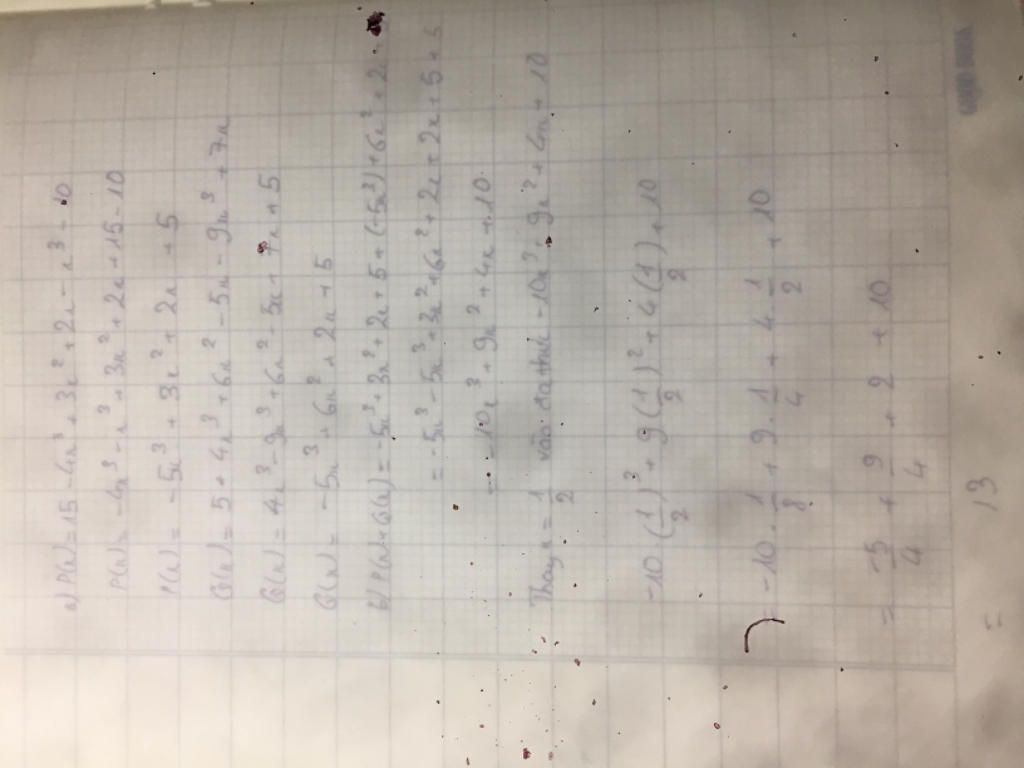 a) P(x) = 15 - 4x³ + 3x² + 2x - x³ - 10
P(x) = -4x³ - x³ + 3x² + 2x + 15 - 10
P(x) = -5x³ + 3x² + 2x + 5
Q(x) = 5 + 4x³ + 6x² - 5x - 9x³ + 7x
Q(x) = 4x³ - 9x³ + 6x² - 5x + 7x + 5
Q(x) = -5x³ + 6x² + 2x + 5
b) P(x) + Q(x) = -5x³ + 3x² + 2x + 5 + (-5x³) + 6x² + 2
= -5x³ - 5x³ + 3x² + 6x² + 2x + 2x + 5 + 5
= -10x³ + 9x² + 4x + 10
Thay x = 1/2 vào -10x³ 9x² + 4x + 10
-10 (1/2)³ + 9 (1/2)² + 4 (1/2) + 10
= -10 . 1/8 + 9 . 1/4 + 4 . 1/2 + 10
= -5/4 + 9/4 + 2 + 10
= 13